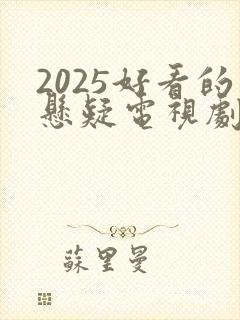 2025好看的
懸疑電視劇
蘇里曼